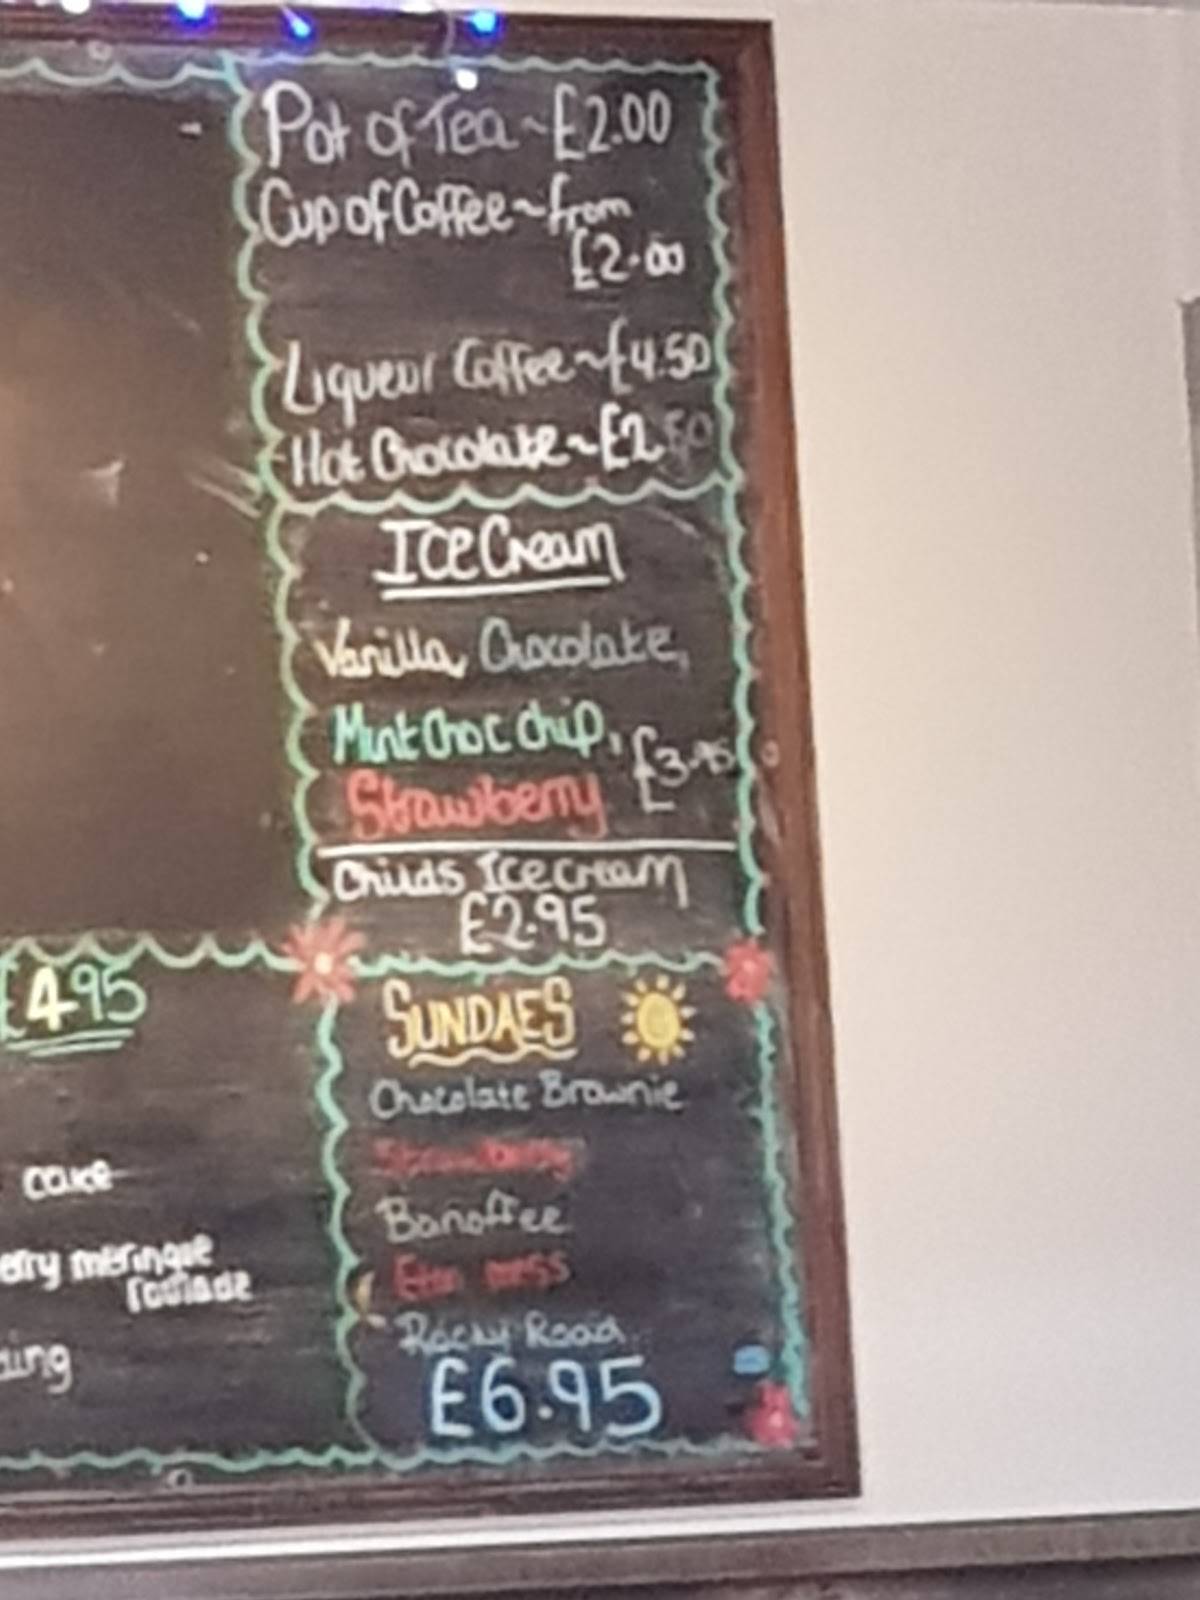 Pot of Tea ~ £2.00
Cup of Coffee ~ from
£2.00
Liqueur Coffee ~ £4.50
Hot Chocolate ~ £2.50
Ice Cream
Vanilla, Chocolate,
Mint Choc Chip,
£3.95
Strawberry
Childs Ice cream
£2.95
£4.95
cake
erry meringue
roulade
SUNDAES
Chocolate Brownie
Strawberry
Banoffee
Eton mess
Rocky Road
£6.95